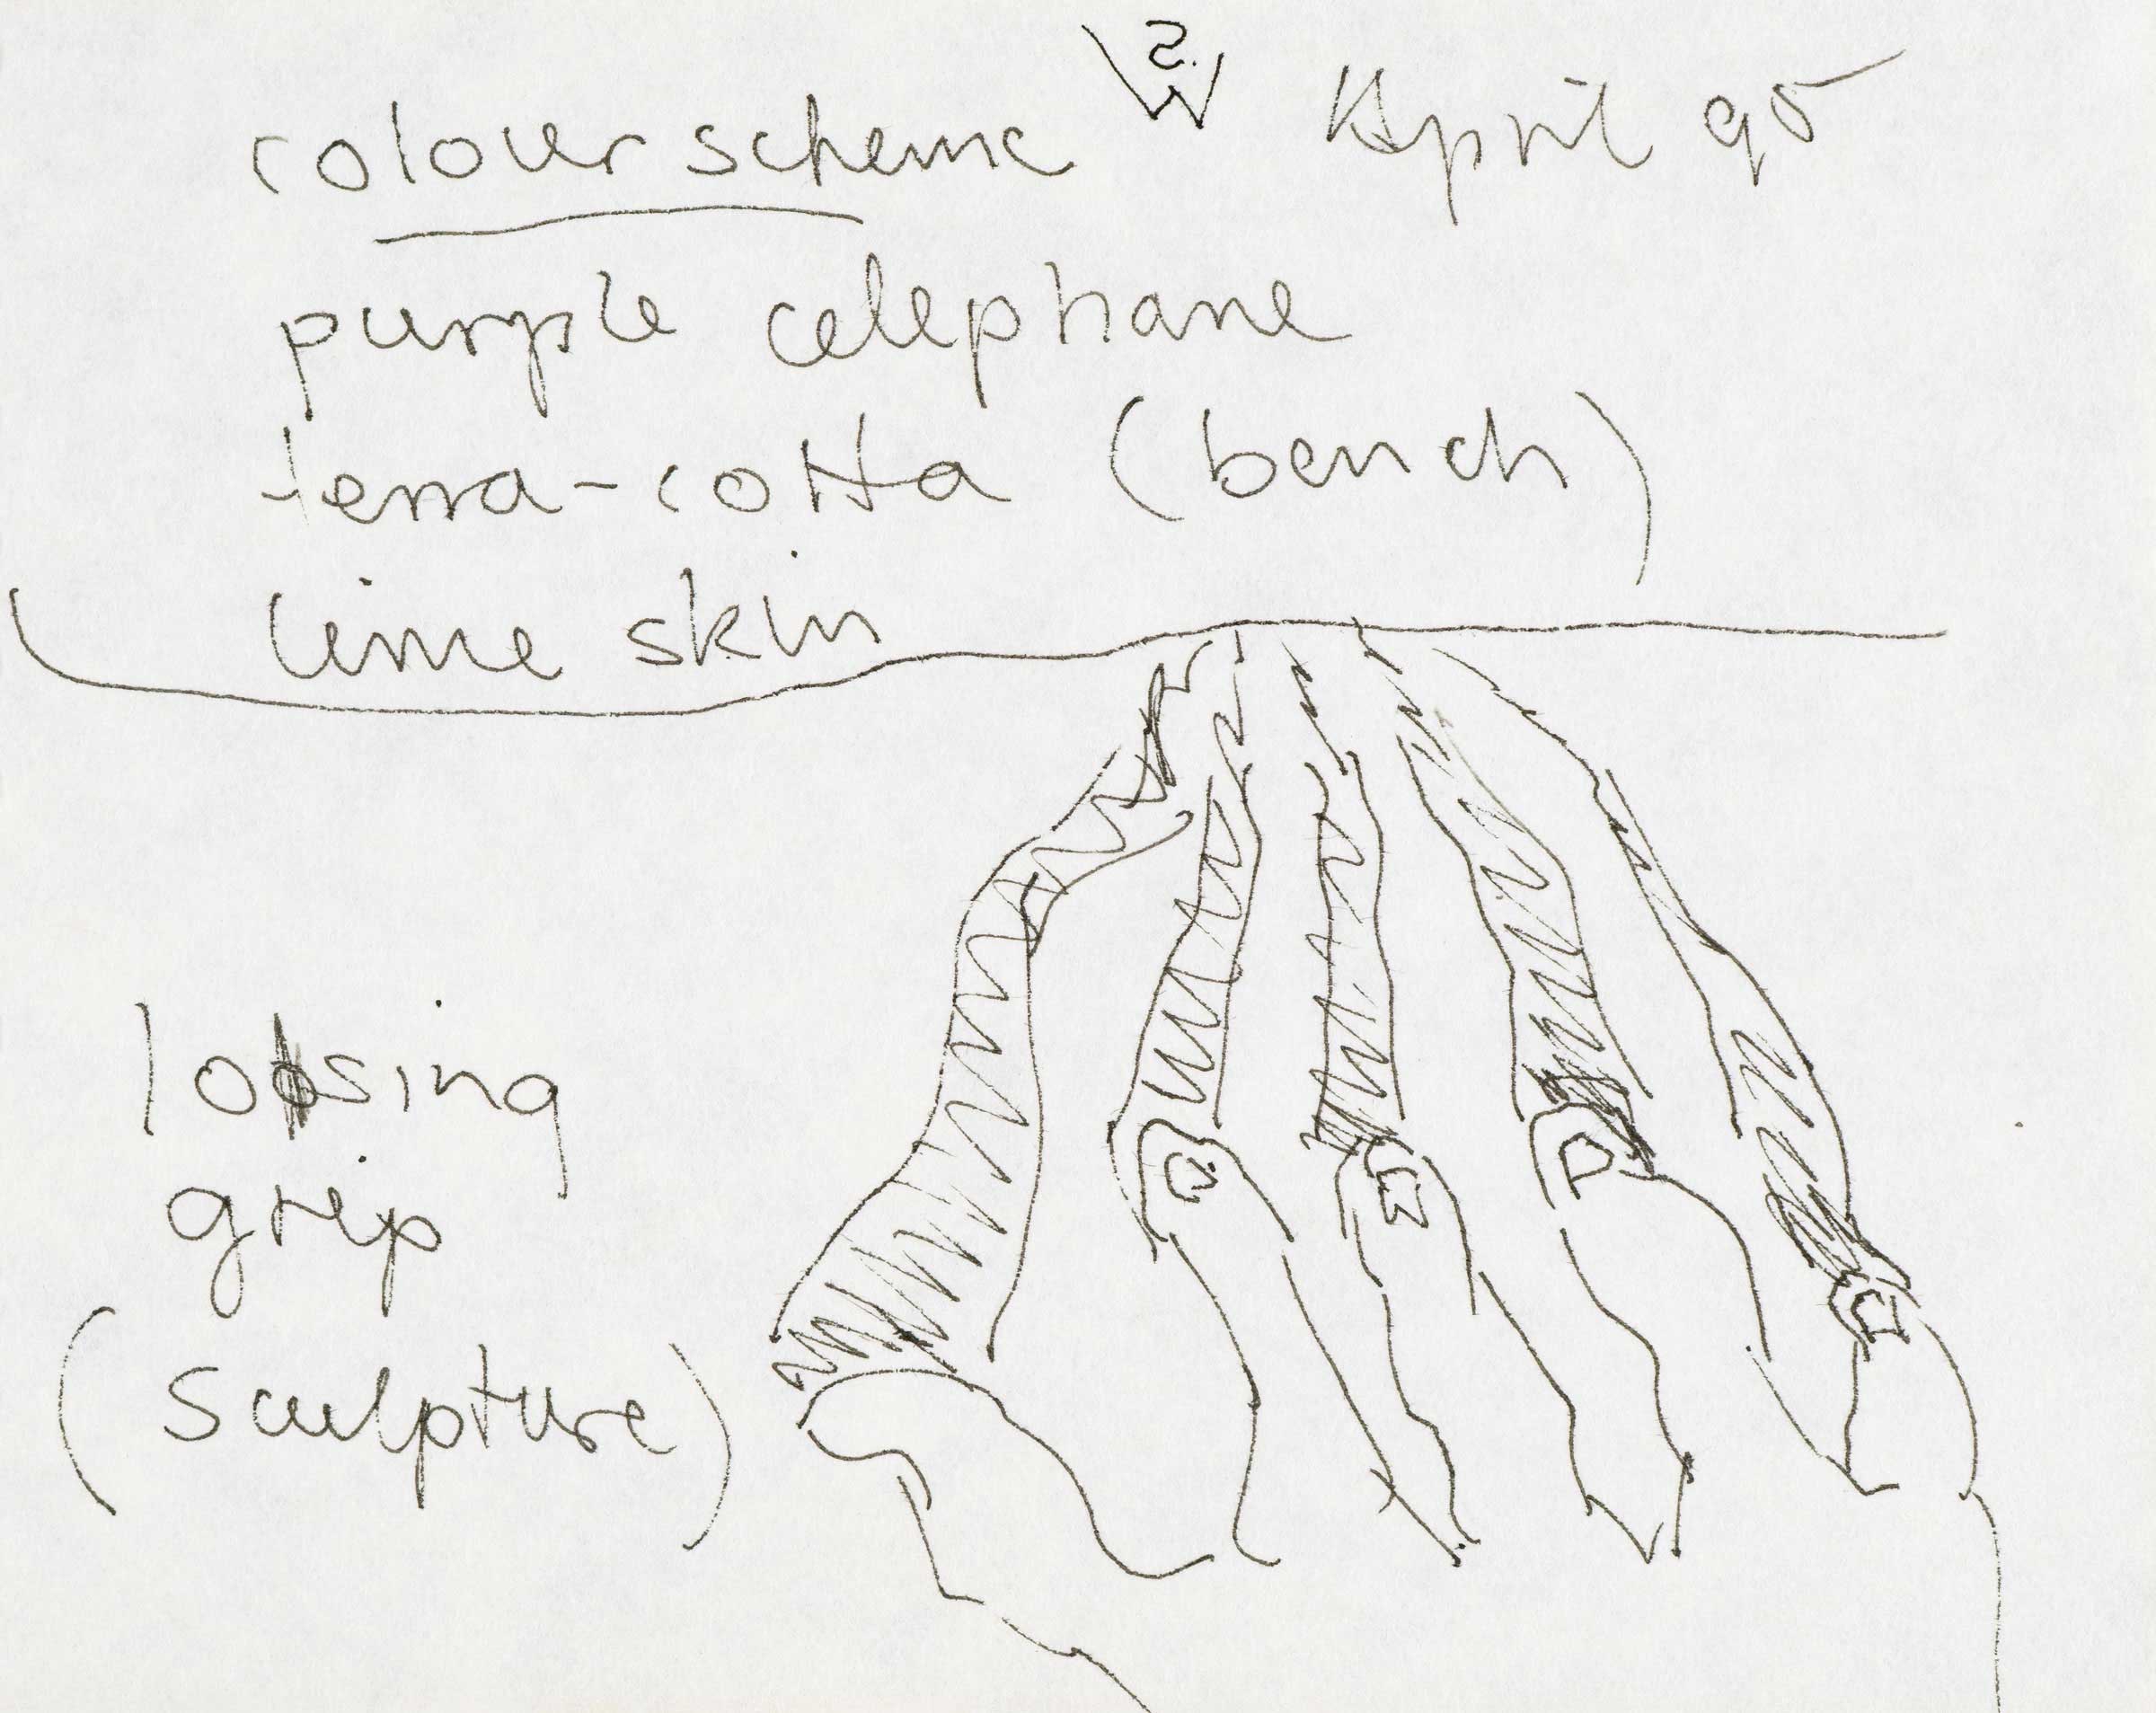 colour scheme April 95
purple celephane
terra-cotta (bench)
lime skin
losing
grip
(sculpture)